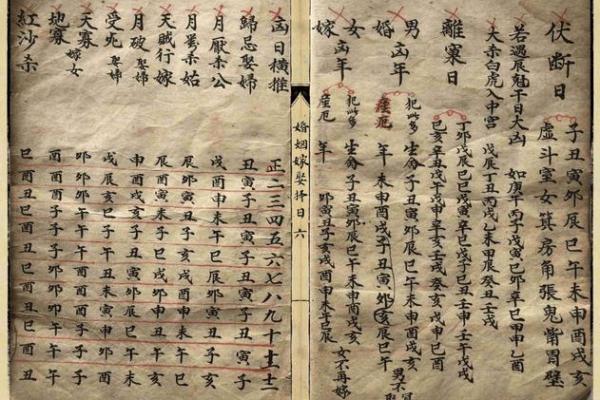 伏断日 子丑寅卯辰巳午未申酉戌亥
虚斗室女箕房角張鬼觜胃壁
若遇辰魁于日大凶 如庚午丙子戊寅己卯辛巳甲申乙酉
大赤白虎入中宮 戊辰丁丑丙戌乙未甲辰癸丑壬戌
離窠日 丁卯戊辰己巳戊寅辛巳戊子己丑
男凶年 犯此多生分 子丑寅卯辰巳午未申酉戌亥
婚 產厄 年 未申酉戌子丑寅卯亥辰巳午 男不
女凶年 犯此多生分 子丑寅卯辰巳午未申酉戌亥
嫁 產厄 年 卯寅丑子亥戌酉申未午巳辰 女不再嫁
婚姻嫁娶择日 六
凶日横推 正二三四五六七八九十十一十二
歸忌娶婦 丑寅子丑寅子丑寅子丑寅子
月厭朱公 戌酉申未午巳辰卯寅丑子亥
杀姑
天賊行嫁 辰酉寅未子巳戌卯申丑午亥
月破娶婦 申酉戌亥子丑寅卯辰巳午未
受死娶婦 戌辰亥巳子午丑未寅申卯酉
天寡嫁女 卯卯卯午午午酉酉酉子子子
地寡 酉酉酉子子子卯卯卯午午午
紅沙杀 巳酉丑巳酉丑巳酉丑巳酉丑